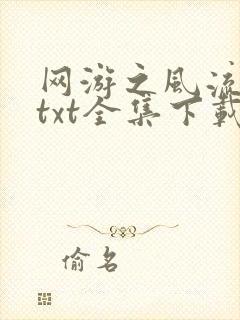 网游之风流
txt全集下载
偷名